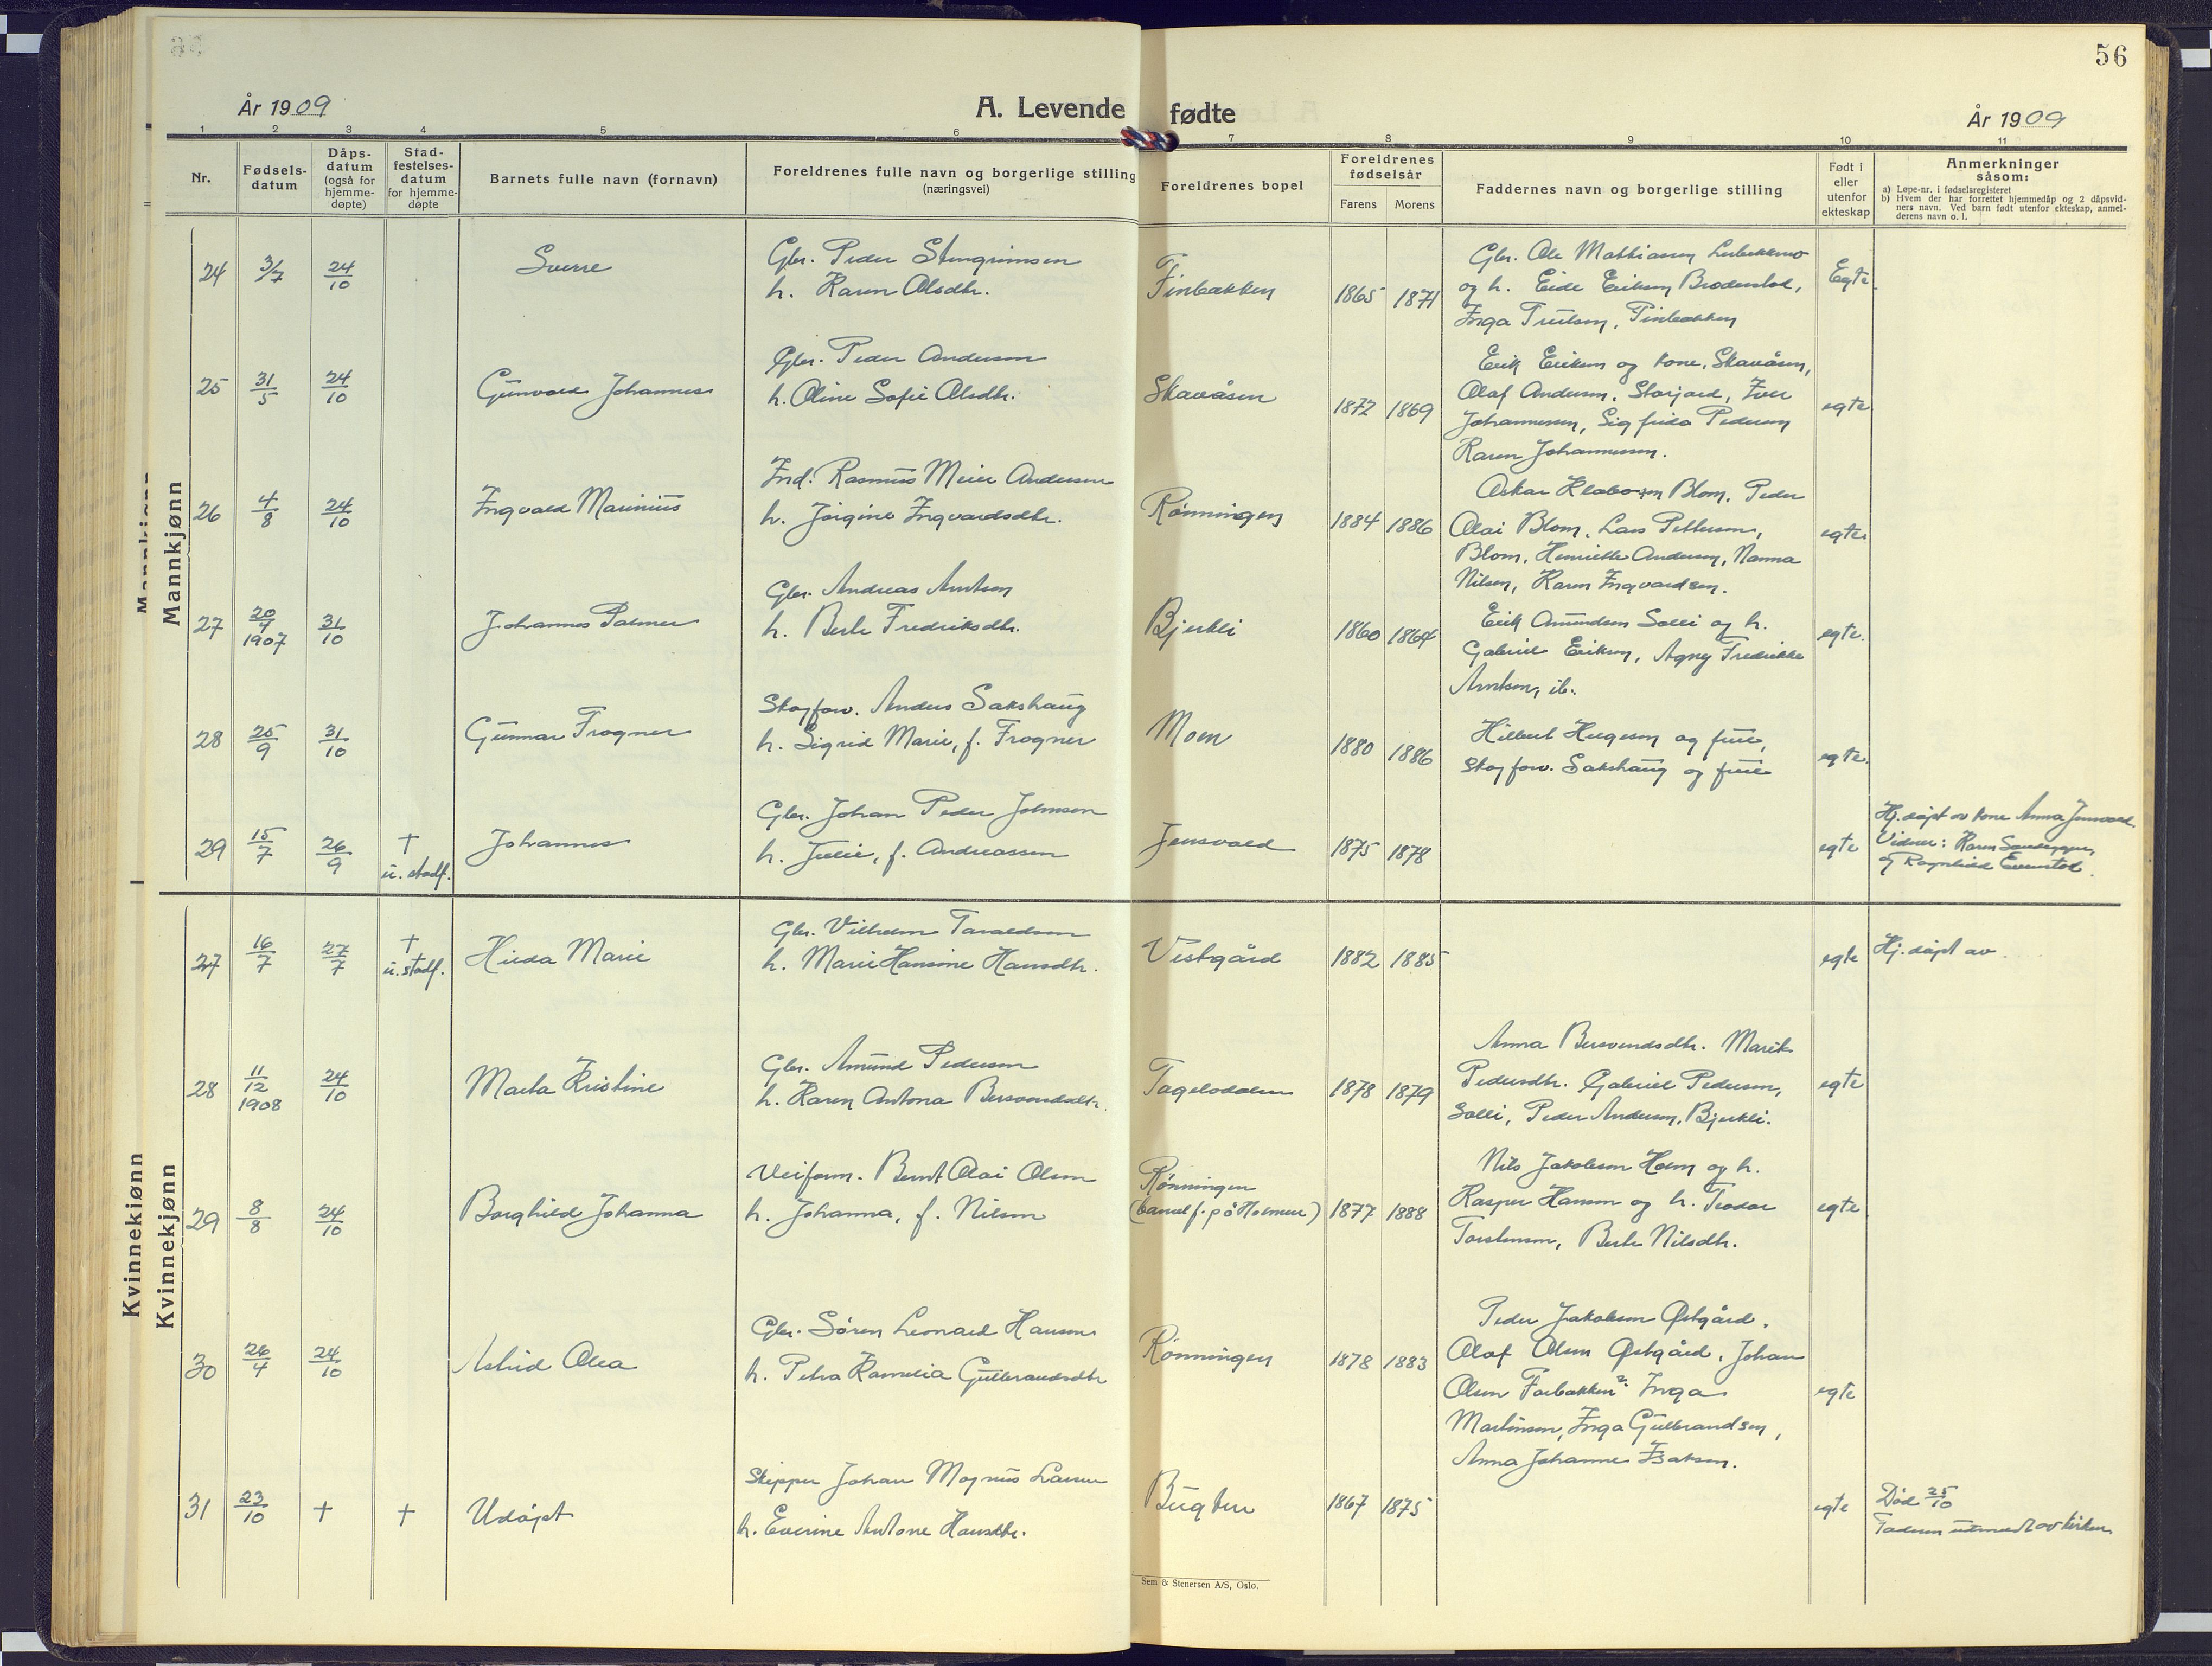 56
År 1909
A. Levende fødte
År 1909
1 2 3 4 5 6 7 8 9 10 11
Nr.
Fødselsdatum
Dåpsdatum (også for hjemmedøpte)
Stadfestelsesdatum for hjemmedøpte
Barnets fulle navn (fornavn)
Foreldrenes fulle navn og borgerlige stilling
(næringsvei)
Foreldrenes bopel
Foreldrenes fødselsår
Farens Morens
Faddernes navn og borgerlige stilling
Født i eller utenfor ekteskap
Anmerkninger
såsom:
a) Løpe-nr. i fødselsregisteret
b) Hvem der har forrettet hjemmedåp og 2 dåpsvidners navn. Ved barn født utenfor ekteskap, anmelderens navn o. l.
Mannkjønn
Mannkjønn
24 3/7 24/10 Sverre
Gbr. Peder Stengrimsen
h. Karen Olsdtr.
Finbakken 1865 1871
Gbr. Ole Mathiasen
og h. Eide Eriksen
Inga Finbakken
Egte
25 31/5 24/10 Gunvald Johannes
Gbr. Peder Andersen
h. Oline Sofie Olsdtr.
Skavåsen 1872 1869
Erik Eriksen og kone, Skavåsen,
Olaf Andersen, Storjord, Iver
Johannessen, Sigfrida Pedersen
Karen Johannessen.
egte
26 4/8 24/10 Ingvald Marinius
Ind. Rasmus Meier Andersen
h. Jørgine Ingvardsdtr.
Rønningen 1884 1886
Oskar Blom, Peder
Olai Blom, Lars Pettersen,
Blom, Henriette Andersen, Nanna
Nilsen, Karen Ingvardsen.
egte
27 20/4 1907 31/10 Johannes Palmer
Gbr. Andreas Arntsen
h. Berte Fredriksdtr.
Bjerkli 1860 1864
Erik Amundsen Solli og h.
Gabriel Eriksen, Agny Fredrikke
Arntsen, ib.
egte.
28 25/9 31/10 Gunnar Frogner
Skogforv. Anders Sakshaug
h. Sigrid Marie, f. Frogner
Moen 1880 1886
Hilbert Hugesen og frue,
Skogforv. Sakshaug og frue
egte.
29 15/7 26/9 † u. stadf. Johannes
Gbr. Johan Peder Johnsen
h. Julie, f. Andreassen
Jensvold 1875 1878
egte
Hj.døpt av kone Anna Jensvold.
Vidner: Karen
og Ragnhild Evenstad.
Kvinnekjønn
Kvinnekjønn
27 16/7 27/7 † u. stadf. Hilda Marie
Gbr. Vilhelm Taraldsen
h. Marie Hansine Hansdtr.
Vestgård 1882 1885
egte
Hj. døpt av
28 11/12 1908 24/10 Marta Kristine
Gbr. Amund Pedersen
h. Karen Antona Bersvendsdtr.
1878 1879
Anna Bersvendsdtr. Marit
Pedersdtr. Gabriel Pedersen,
Solli, Peder Andersen, Bjerkli.
egte
29 8/8 24/10 Borghild Johanna
Veiform. Bernt Olai Olsen
h. Johanna, f. Nilsen
Rønningen
(barnet f. på Holmen) 1877 1888
Nils Jakobsen Holm og h.
Kasper Hansen og h. Teodor
Torstensen, Berte Nilsdtr.
egte
30 26/4 24/10 Astrid Olea
Gbr. Søren Leonard Hansen
h. Petra Kornelia Gulbrandsdtr
Rønningen 1878 1883
Peder Jakobsen Østgård,
Olaf Olsen Østgård, Johan
Olsen Forbakken? Inga
Martinsen, Inga Gulbrandsen,
Anna Johanne Isaksen.
egte
31 23/10 † † Udøpt
Skipper Johan Magnus Larsen
h. Everine Antone Hansdtr.
Bugten 1867 1875
egte
Død 25/10
Faderen utmeldt av kirken
Sem & Stenersen A/S, Oslo.